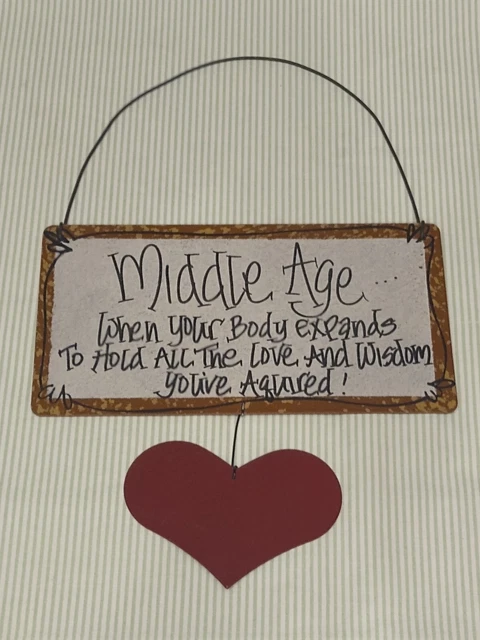 Middle Age....
When Your Body Expands
To Hold All The Love And Wisdom
You've Aquired!